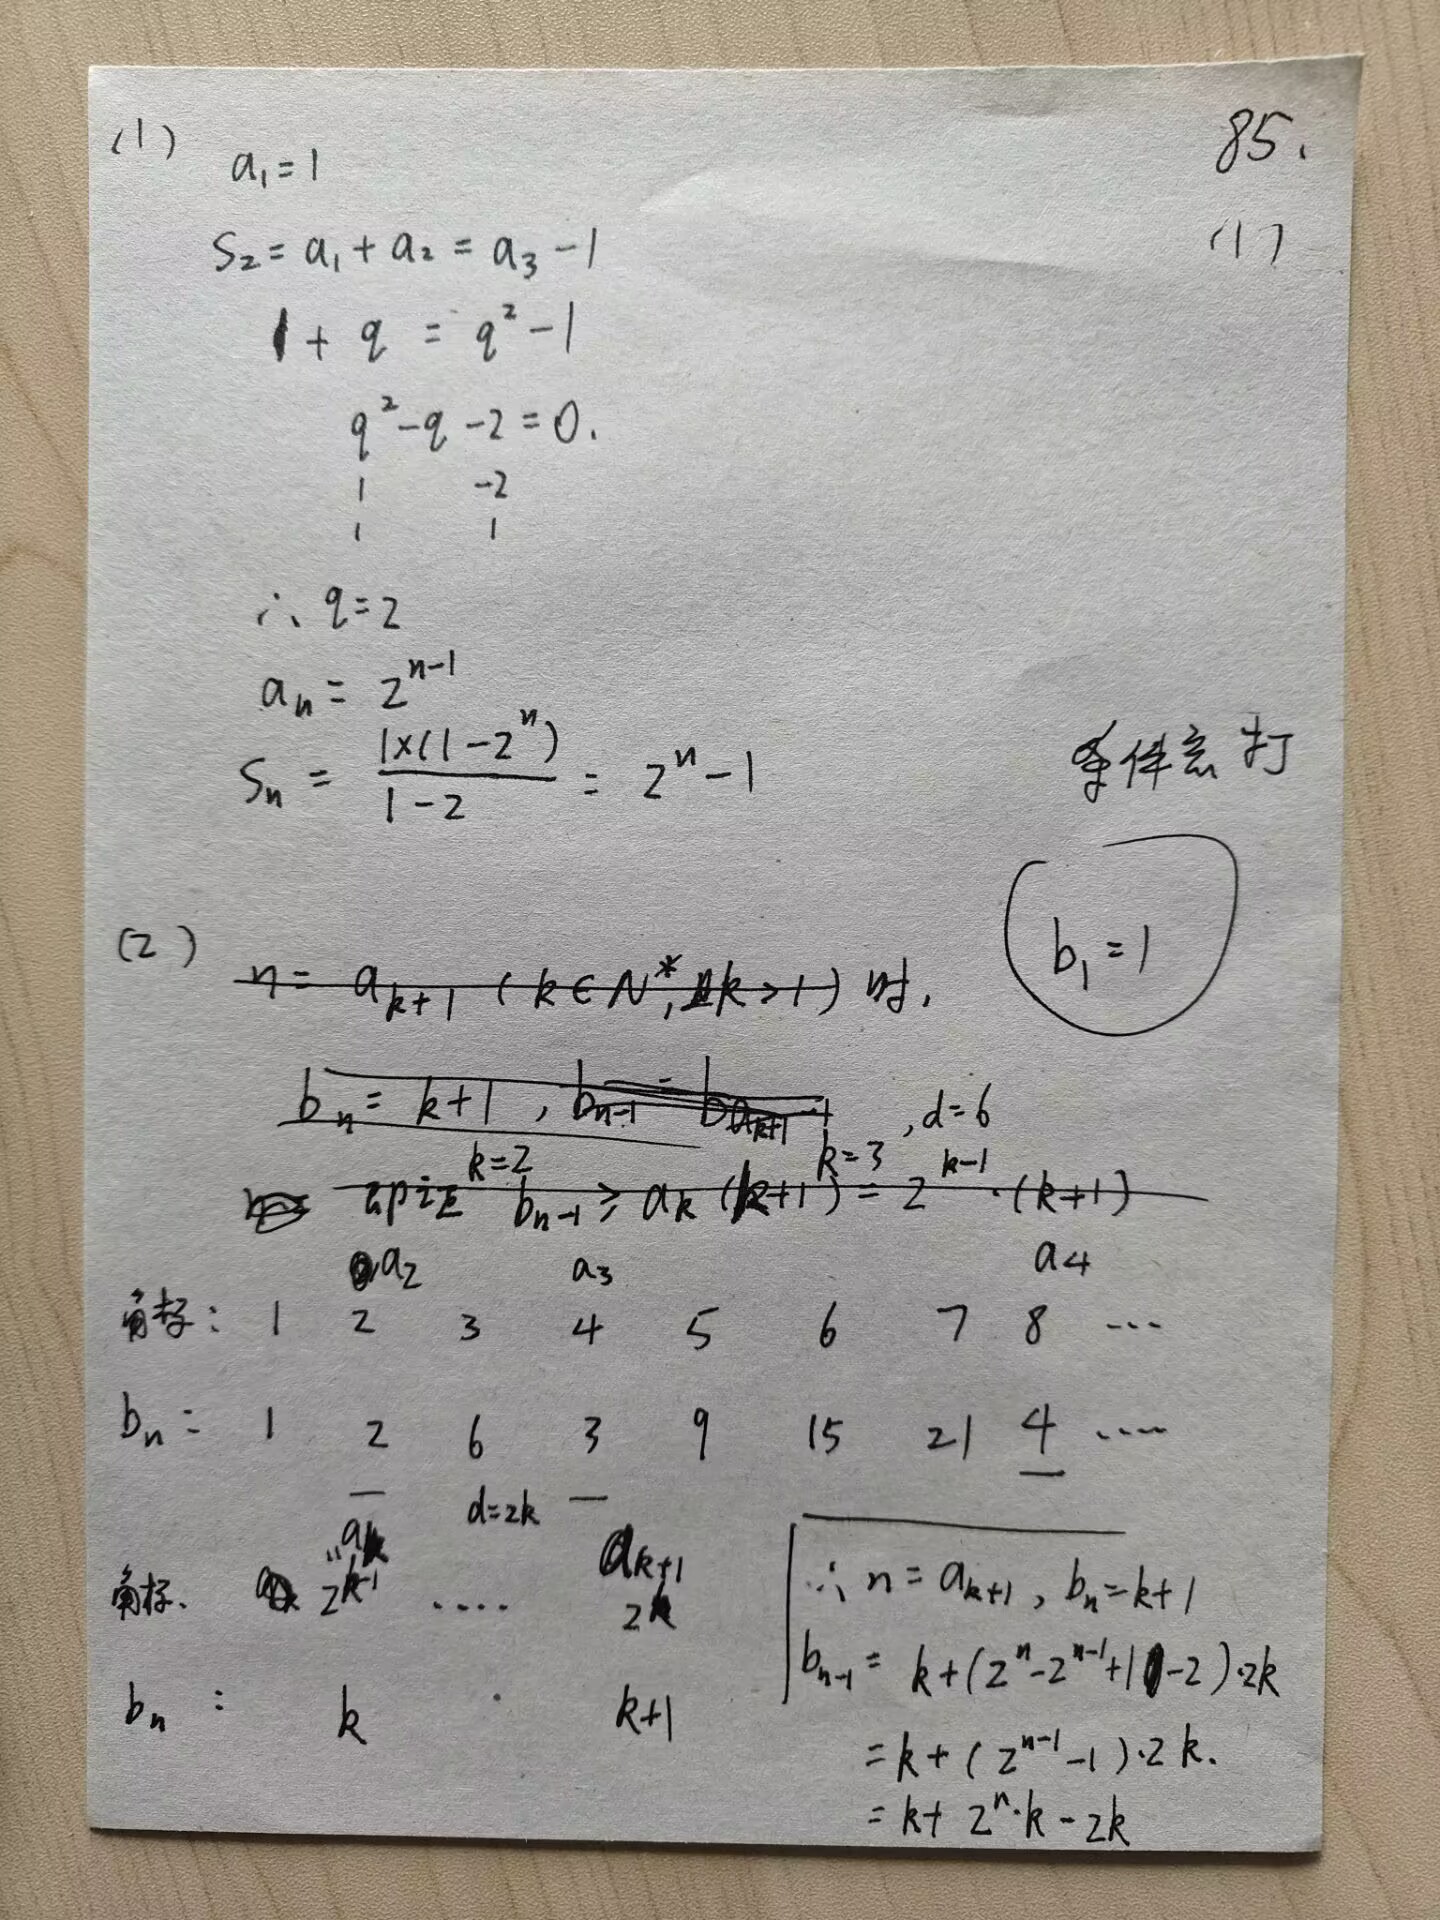 85.
(1)
(1)
a₁=1
S₂ = a₁ + a₂ = a₃ -1
1 + q = q² -1
q² - q -2 = 0.
1 -2
1 1
∴ q=2
aₙ = 2ⁿ⁻¹
Sₙ = 1×(1-2ⁿ)/(1-2) = 2ⁿ-1
条件忘打
b₁=1
(2)
n = aₖ₊₁ (k∈N*, 且k>1) 时,
bₙ = k+1 , bₙ₋₁ = b
k=2 k=3 , d=6
即证 bₙ₋₁ ≥ aₖ (k+1) = 2ᵏ⁻¹·(k+1)
a₂ a₃ a₄
角标: 1 2 3 4 5 6 7 8 ...
bₙ: 1 2 6 3 9 15 21 4 ....
d=2k
aₖ aₖ₊₁
角标. 2ᵏ⁻¹ .... 2ᵏ
bₙ : k · k+1
∴ n = aₖ₊₁ , bₙ=k+1
bₙ₋₁ = k+(2ⁿ-2ⁿ⁻¹+1-2)·2k
= k+(2ⁿ⁻¹-1)·2k.
= k+ 2ⁿ·k - 2k